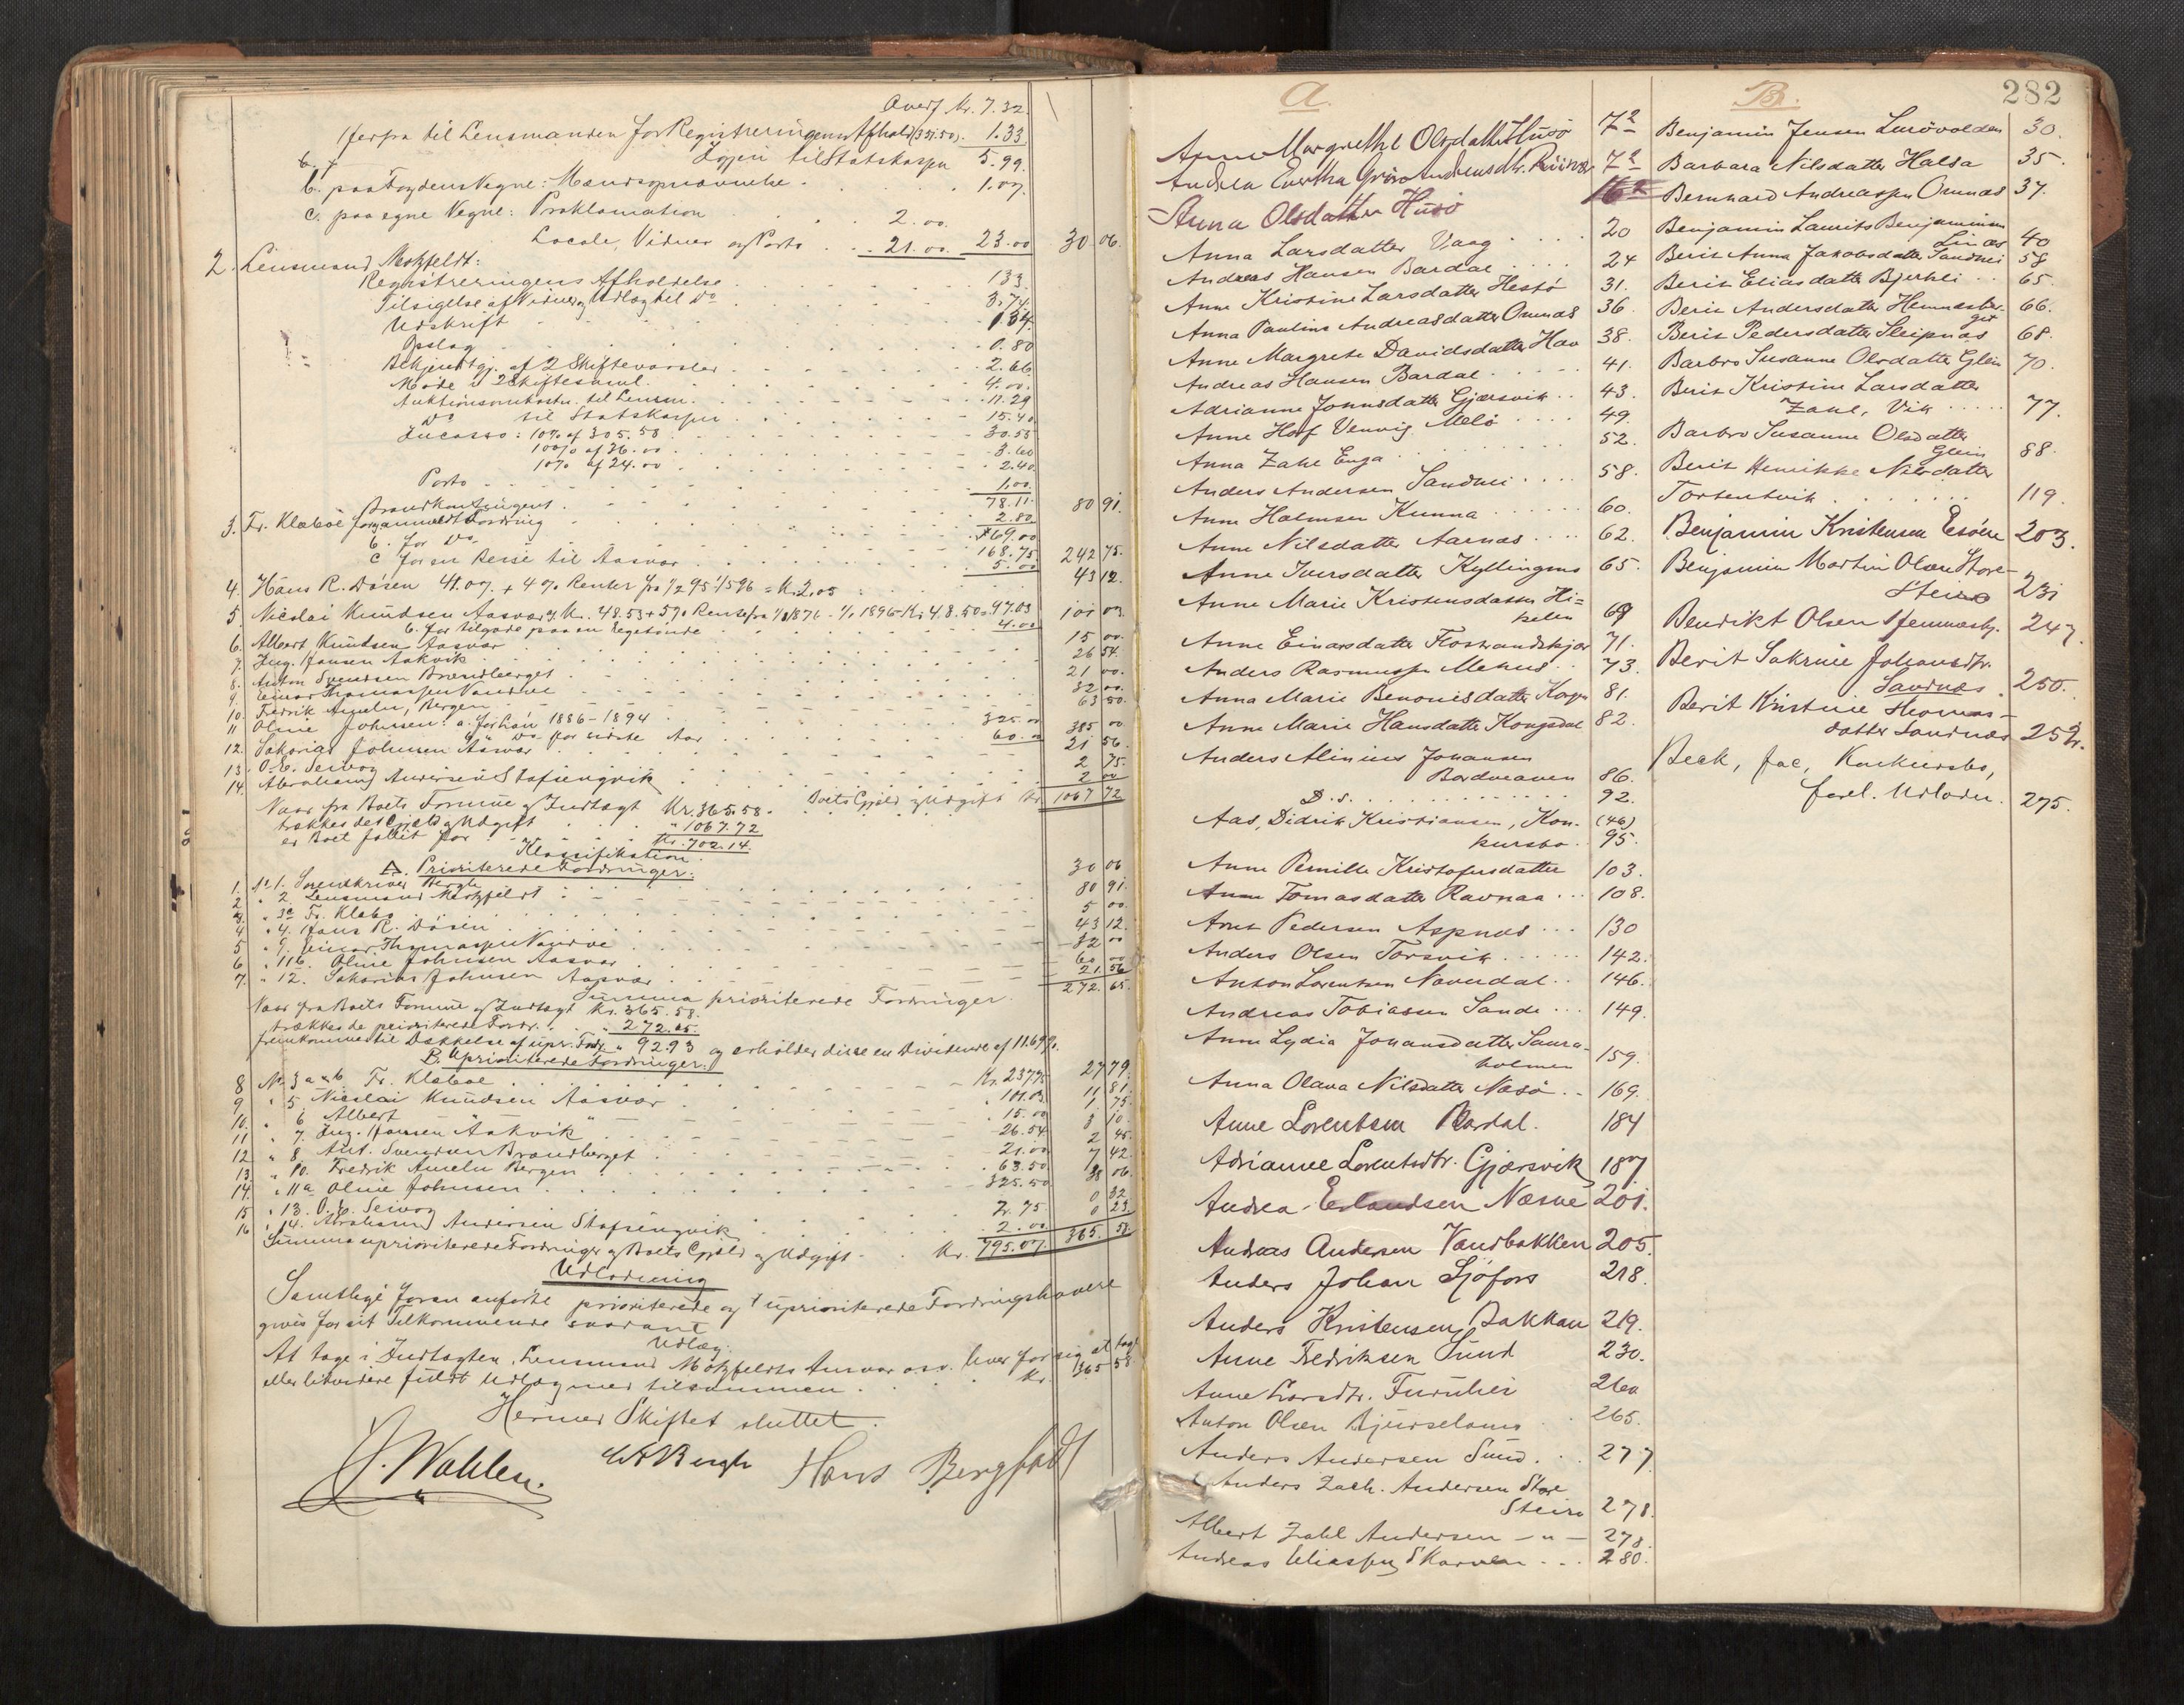 Overf. Kr. 7.32
Herfra til Lensmanden for Registreringens Afhold (351.50) 1.33
Igjen til Statskassen 5.99
b. paa Fogdens Vegne: Mandsopnævnelse . 1.07
c. paa egne Vegne: Proklamation 2.00
Locale, Vidner og Porto . . 21.00 23.00 30 06.
2. Lensmand Motzfeldt:
Registreringens Afholdelse 133
Tilsigelse af Vidner og Udlæg til Do 3.74
Udskrift 1.34
Opslag 0.80
Bekjendtgj. af 2 Skiftevarsler 2.66
Møde i 2 Skiftesaml. 4.00
Auktionsomkostn. til Lensm. 11.29
Do til Statskassen 15.40
Incasso: 10% af 305.58 30.55
10% af 36.00 3.60
10% af 24.00 2.40
Porto 1.00
78.11
Brandkontingent 2.80 80 91
3. Fr. Klæboe for anmeldt Fordring 69.00
b. for Do 168.75
c for en Reise til Aasvær 5.00 242 75.
4. Hans R. Dösen 41.07 + 4% Renter fra 1/2 95-1/5 96 = Kr. 2.05 43 12.
5. Nicolai Knudsen Aasvær Kr. 48.53 + 5% Rente fra 1/1 1876 - 1/1 1896 - Kr. 48.50 = 97.03
b. for tilgode paa en Legebönde 4.00 101 03
6. Albert Knudsen Aasvær 15 00
7. Ing. Hansen Aakvik 26 54.
8. Anton Svendsen Brændberget 21 00.
9. Einar Thomassen Vandve 32 00.
10. Fredrik Ameln, Bergen 63 50.
11 Oline Johnsen: a. for Løn 1886-1894 325.00
b. Do for sidste Aar 60.00 385 00
12. Sakarias Johnsen Aasvær 21 56.
13. O.E. Seivog 2 75.
14. Abraham Andersen Stafsengvik 2 00
Boets Gjæld og Udgift Kr. 1067 72
Naar fra Boets Formue og Indtægt Kr. 365.58.
trækkes det Gjæld og Udgift " 1067.72
er Boet fallit for Kr. 702.14.
Klassifikation.
A. Prioriterede Fordringer.
1. No 1. Sorenskriver Bergh 30 06
2 " 2. Lensmand Motzfeldt 80 91.
3. " 3c Fr. Klæbo 5 00
4 " 4. Hans R. Dösen 43 12.
5 " 9. Einar Thomassen Vandve 32 00
6 " 11b. Oline Johnsen Aasvær 60 00
7. " 12. Sakarias Johnsen Aasvær 21. 56
Summa prioriterede Fordringer 272. 65.
Naar fra Boets Formue og Indtægt Kr. 365.58.
trækkes de prioriterede Fordr. " 272.65.
fremkommer til Dækkelse af upr. Fordr. " 92.93 og erholder disse en Dividende af 11.69%.
B. Uprioriterede Fordringer.
8 No 3 a & b. Fr. Klæboe Kr. 237.75 27 79.
9 " 5 Nicolai Knudsen Aasvær 101.03 11 81.
10. " 6 Albert " " 15.00 1 75.
11 " 7. Ing. Hansen Aakvik 26.54 3 10.
12 " 8 Ant. Svendsen Brændberget 21.00 2 45.
13. " 10. Fredrik Ameln Bergen 63.50 7 42.
14. " 11a Oline Johnsen 325.50 38 06.
15 " 13. O.E. Seivog 2.75 0 32
16 " 14. Abraham Andersen Stafsengvik 2.00 0 23
Summa uprioriterede Fordringer og Boets Gjæld og Udgift Kr. 795.07. 365. 58.
Udlodning
Samtlige foran anførte prioriterede og uprioriterede Fordringshavere
gives for sit Tilkommende saadant
Udlæg.
At tage i Indtægten, Lensmand Motzfeldts Ansvar osv. hver for sig at tage
eller likvidere fuldt Udlæg med tilsammen Kr. 365 58
Hermed Skiftet sluttet.
J. Wahlen. Bergh Hans Bergfodt
282
A.
Anne Margrethe Olsdatter Husö 7a
Andrea Evertha Gröns Andreasdtr. 7a
Anna Olsdatter Husö 16a
Anna Larsdatter Vaag 20
Andreas Hansen Bardal 24
Anne Kristine Larsdatter Hestö 31.
Anna Pauline Andreasdatter Omnæs 36
Anne Margrete Davidsdatter Hav 38.
Andreas Hansen Bardal 41.
Adrianne Johnsdatter Gjærsvik 43.
Anne Hoff Vennvig Melö 49.
Anna Zahl Enga 52.
Anders Andersen Sandnei 58.
Anne Holmsen Kunna 60.
Anne Nilsdatter Aarnæs 62.
Anne Iversdatter Kyllingmo 65.
Anne Marie Kristensdatter Hi=
helen 69
Anne Einarsdatter Flostrandskjær 71.
Anders Rasmussen Mehus 73.
Anna Marie Benonisdatter 81.
Anne Marie Hansdatter Kongsdal 82.
Anders Alinius Johansen
Bordveaven 86.
D.s. 92.
Aas, Didrik Kristiansen, Kon- (46)
kursbo 95.
Anne Pernille Kristofersdatter 103.
Anne Tomasdatter Ravnaa 108.
Arnt Pedersen Aspnæs 130
Anders Olsen Torsvik 142.
Anton Lorentsen Nævrdal 146.
Andreas Tobiassen Sande 149.
Anne Lydia Johansdatter Saura-
holmen 159.
Anna Olava Nilsdatter Næsö 169.
Anne Lorentsen Bardal. 184
Adrianne Lorentsdtr. Gjærsvik 187
Andrea Erlandsen Næsne 201.
Andreas Andersen Vandbakken 205.
Anders Johan Sjöfors 218.
Anders Kristensen Bakkan 219.
Anne Fredriksen Sund 230.
Anne Larsdtr. Furuhei 260
Anton Olsen 265.
Anders Andersen Sund. 277
Anders Zach. Andersen Store
Steiro 278.
Albert Zahl Andersen — " — 278.
Andreas Eliassen Skarven 280.
B.
Benjamin Jensen Luróvolden 30.
Barbara Nilsdatter Halsa 35.
Bernhard Andreassen Omnæs 37.
Benjamin Laurits Benjaminsen
Linæs 40
Berit Anna Jakobsdatter Sandnei 58
Berit Eliasdatter Bjerkli 65.
Berit Andersdatter Hemnesber-
get 66.
Berit Pedersdatter Sleipnæs 68.
Barbro Susanne Olsdatter Glein 70.
Berit Kristine Larsdatter
Zahl, Vik 77.
Barbro Susanne Olsdatter
Glein 88.
Berit Henrikke Nilsdatter
Torsentvik 119.
Benjamin Kristensen Esöen 203.
Benjamin Martin Olsen Store-
Steiro 231
Bendikt Olsen Hemnesb. 247.
Berit Sakrine Johansdtr.
Sandnæs 250.
Berit Kristine Thomas-
datter Sandnæs 252.
Beck, Jac, Konkursbo,
forel. Utlodn. 275.